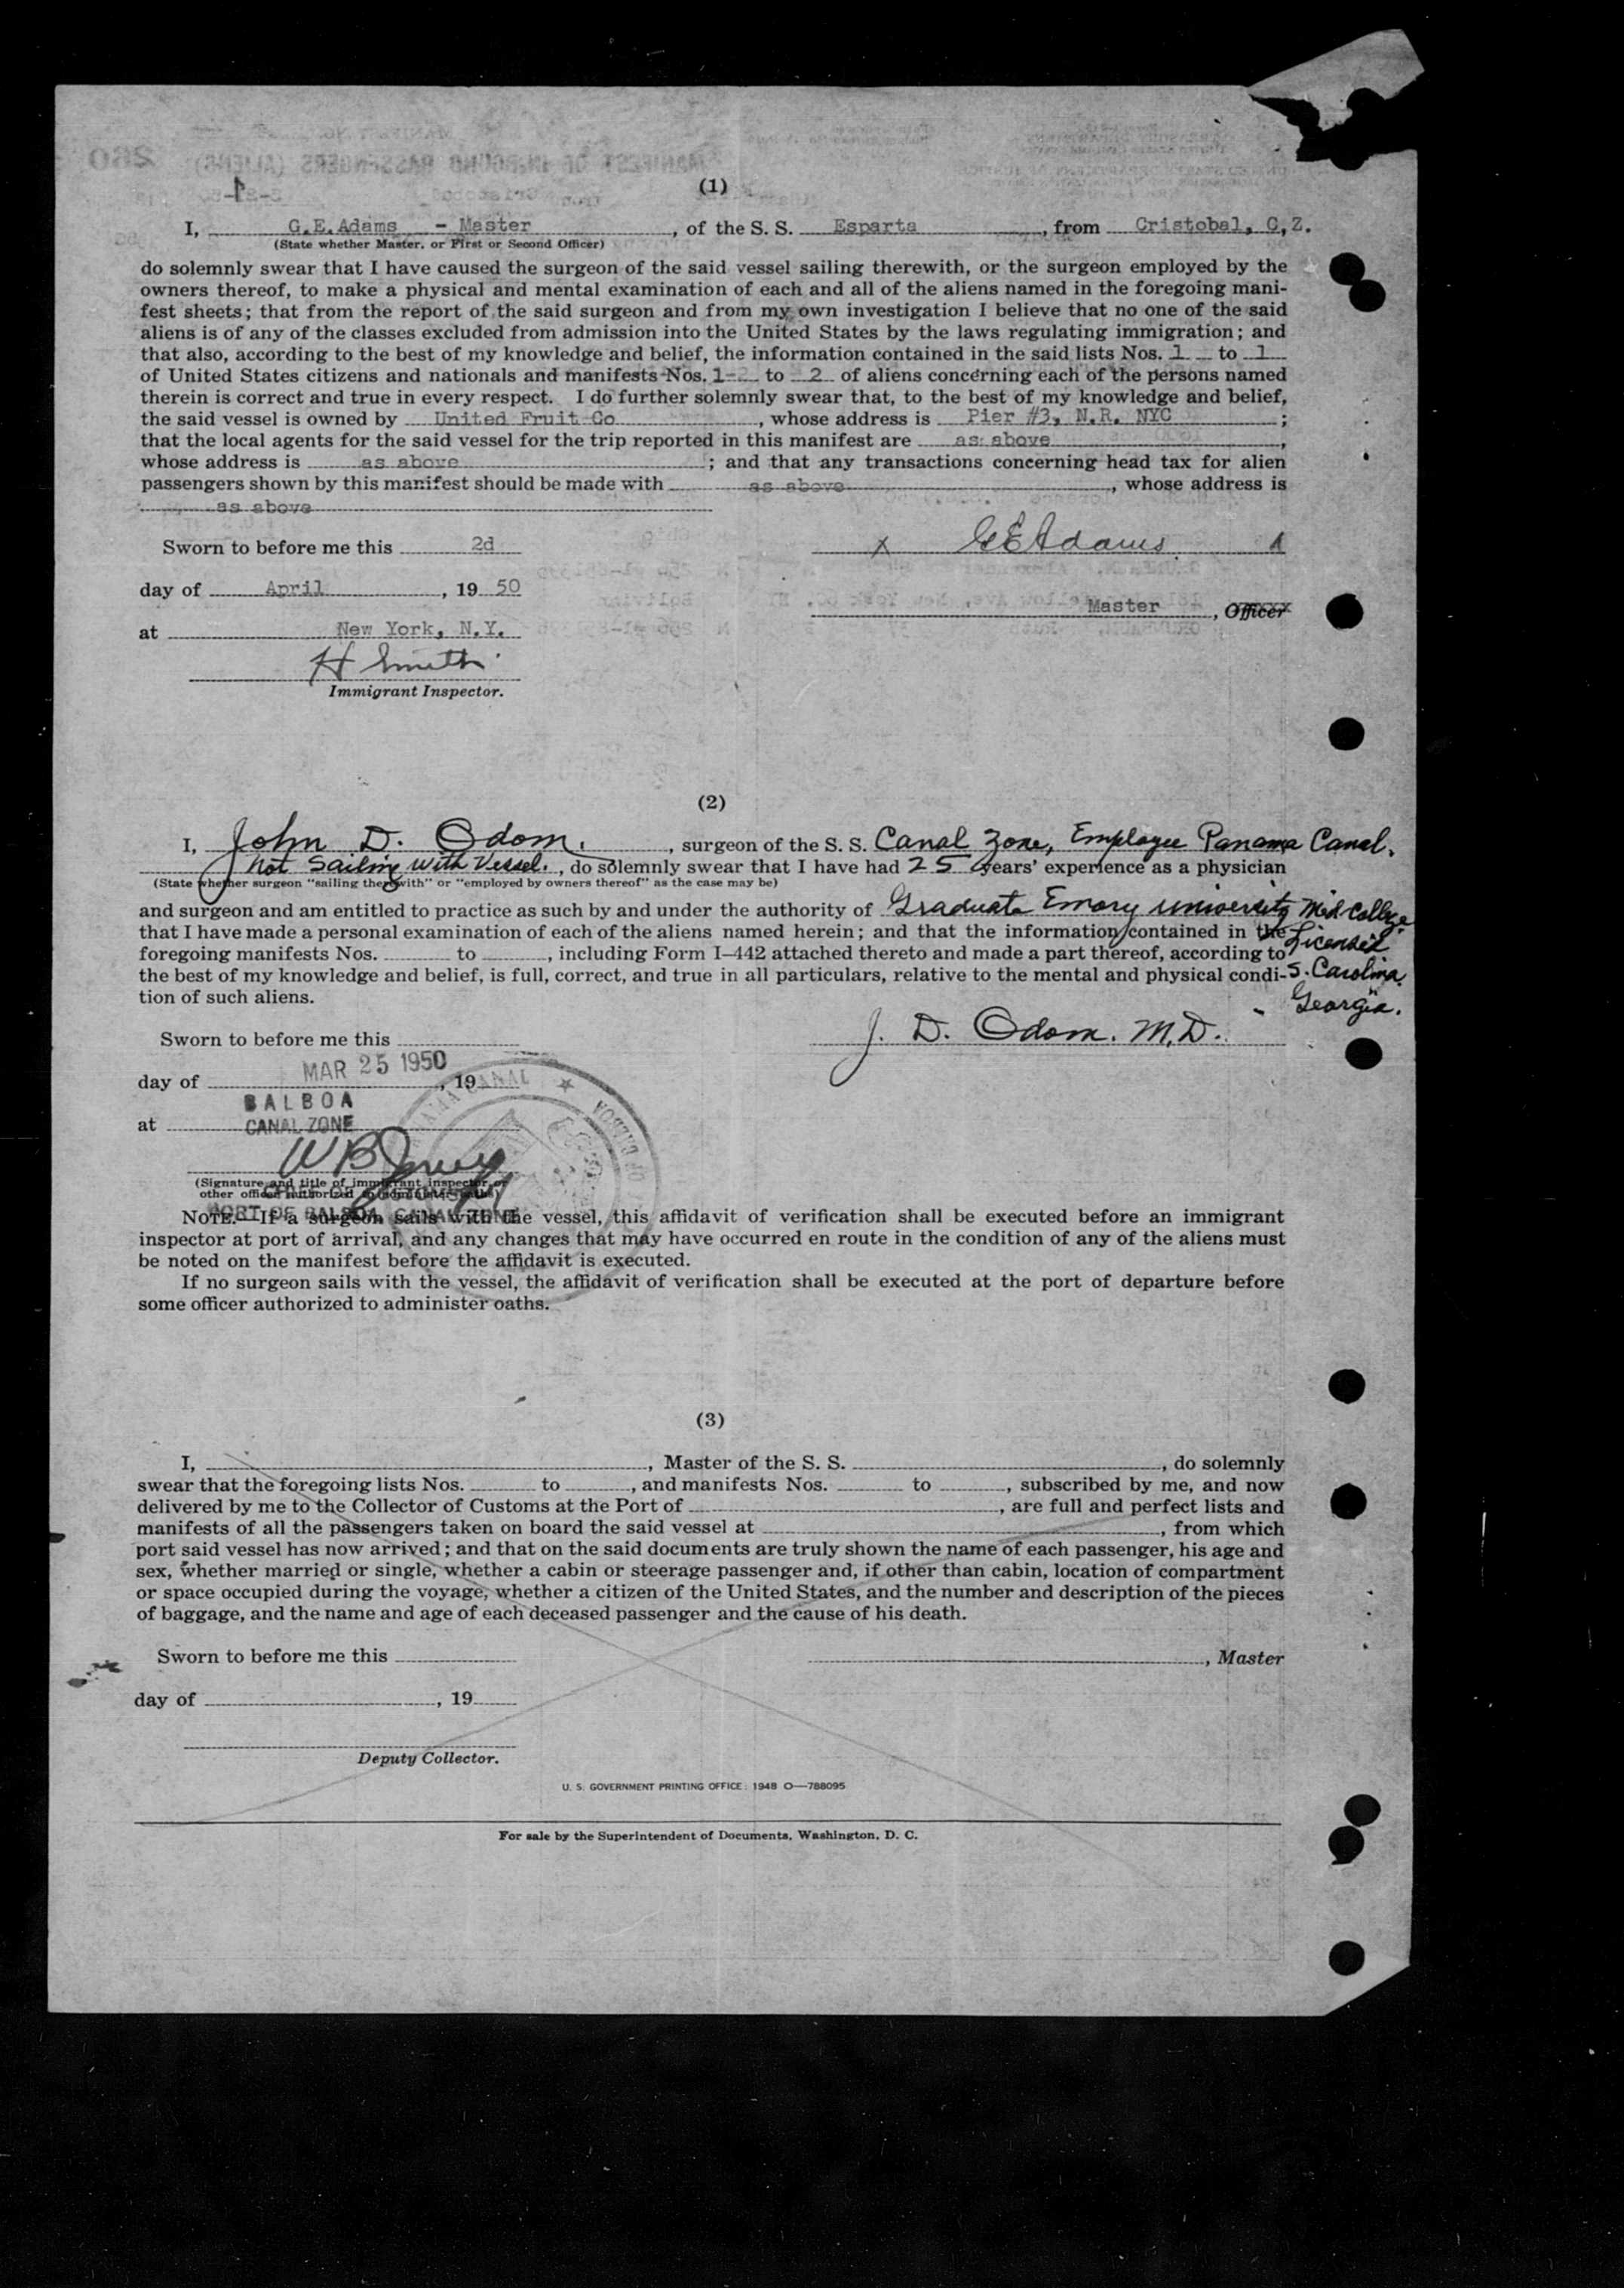 (1)
I, G.E.Adams - Master, of the S. S. Esparta, from Cristobal, C.Z.
(State whether Master, or First or Second Officer)
do solemnly swear that I have caused the surgeon of the said vessel sailing therewith, or the surgeon employed by the
owners thereof, to make a physical and mental examination of each and all of the aliens named in the foregoing mani-
fest sheets; that from the report of the said surgeon and from my own investigation I believe that no one of the said
aliens is of any of the classes excluded from admission into the United States by the laws regulating immigration; and
that also, according to the best of my knowledge and belief, the information contained in the said lists Nos. 1 to 1
of United States citizens and nationals and manifests Nos. 1- to 2 of aliens concerning each of the persons named
therein is correct and true in every respect. I do further solemnly swear that, to the best of my knowledge and belief,
the said vessel is owned by United Fruit Co, whose address is Pier #3, N.R. NYC;
that the local agents for the said vessel for the trip reported in this manifest are as above,
whose address is as above; and that any transactions concerning head tax for alien
passengers shown by this manifest should be made with as above, whose address is
as above
Sworn to before me this 2d
x G E Adams
day of April, 19 50
Master, Officer
at New York, N.Y.
H Smith
Immigrant Inspector.
(2)
I, John D. Odom., surgeon of the S. S. Canal Zone, Employee Panama Canal.
Not Sailing with Vessel., do solemnly swear that I have had 25 years' experience as a physician
(State whether surgeon "sailing therewith" or "employed by owners thereof" as the case may be)
and surgeon and am entitled to practice as such by and under the authority of Graduate Emory University Med College
that I have made a personal examination of each of the aliens named herein; and that the information contained in the Licensed
foregoing manifests Nos. to , including Form I-442 attached thereto and made a part thereof, according to
the best of my knowledge and belief, is full, correct, and true in all particulars, relative to the mental and physical condi- S. Carolina
tion of such aliens. " Georgia.
Sworn to before me this
J. D. Odom. M.D.
MAR 25 1950
day of , 19
BALBOA
at CANAL ZONE
(Signature and title of immigrant inspector or
other officer authorized to administer oaths)
PORT OF BALBOA, CANAL ZONE
NOTE.—If a surgeon sails with the vessel, this affidavit of verification shall be executed before an immigrant
inspector at port of arrival, and any changes that may have occurred en route in the condition of any of the aliens must
be noted on the manifest before the affidavit is executed.
If no surgeon sails with the vessel, the affidavit of verification shall be executed at the port of departure before
some officer authorized to administer oaths.
(3)
I, , Master of the S. S. , do solemnly
swear that the foregoing lists Nos. to , and manifests Nos. to , subscribed by me, and now
delivered by me to the Collector of Customs at the Port of , are full and perfect lists and
manifests of all the passengers taken on board the said vessel at , from which
port said vessel has now arrived; and that on the said documents are truly shown the name of each passenger, his age and
sex, whether married or single, whether a cabin or steerage passenger and, if other than cabin, location of compartment
or space occupied during the voyage, whether a citizen of the United States, and the number and description of the pieces
of baggage, and the name and age of each deceased passenger and the cause of his death.
Sworn to before me this
, Master
day of , 19
Deputy Collector.
U. S. GOVERNMENT PRINTING OFFICE: 1948 O—788095
For sale by the Superintendent of Documents, Washington, D. C.